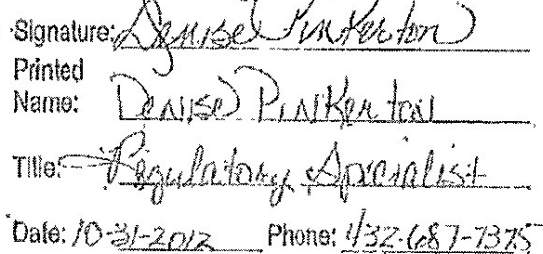 Signature: Denise Pinkerton
Printed
Name: Denise Pinkerton
Title: Regulatory Specialist
Date: 10-31-2012 Phone: 432-687-7375